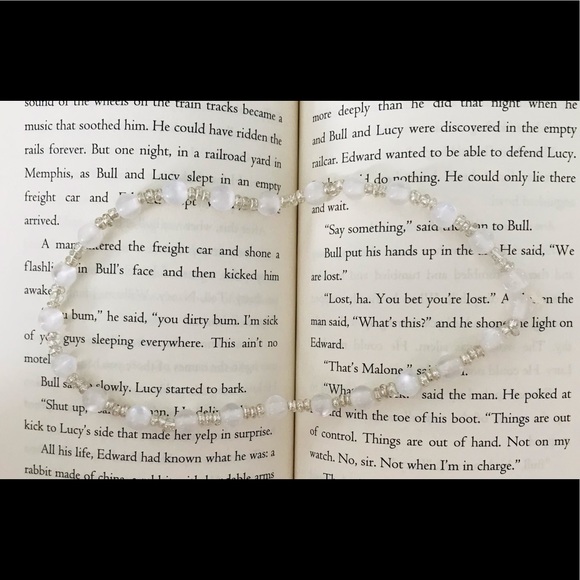 sound of the wheels on the train tracks became a
music that soothed him. He could have ridden the
rails forever. But one night, in a railroad yard in
Memphis, as Bull and Lucy slept in an empty
freight car and
arrived.
A man entered the freight car and shone a
flashlight in Bull's face and then kicked him
awake.
bum," he said, "you dirty bum. I'm sick
of you guys sleeping everywhere. This ain't no
motel
Bull slowly. Lucy started to bark.
"Shut up,"
kick to Lucy's side that made her yelp in surprise.
All his life, Edward had known what he was: a
rabbit made of china, arms
more deeply than he did that night when he
and Bull and Lucy were discovered in the empty
railcar. Edward wanted to be able to defend Lucy.
do nothing. He could only lie there
and wait.
"Say something," said the man to Bull.
Bull put his hands up in the He said, "We
are lost."
"Lost, ha. You bet you're lost." on the
man said, "What's this?" and he shone the light on
Edward.
"That's Malone,"
said the man. He poked at
with the toe of his boot. "Things are out
of control. Things are out of hand. Not on my
watch. No, sir. Not when I'm in charge."